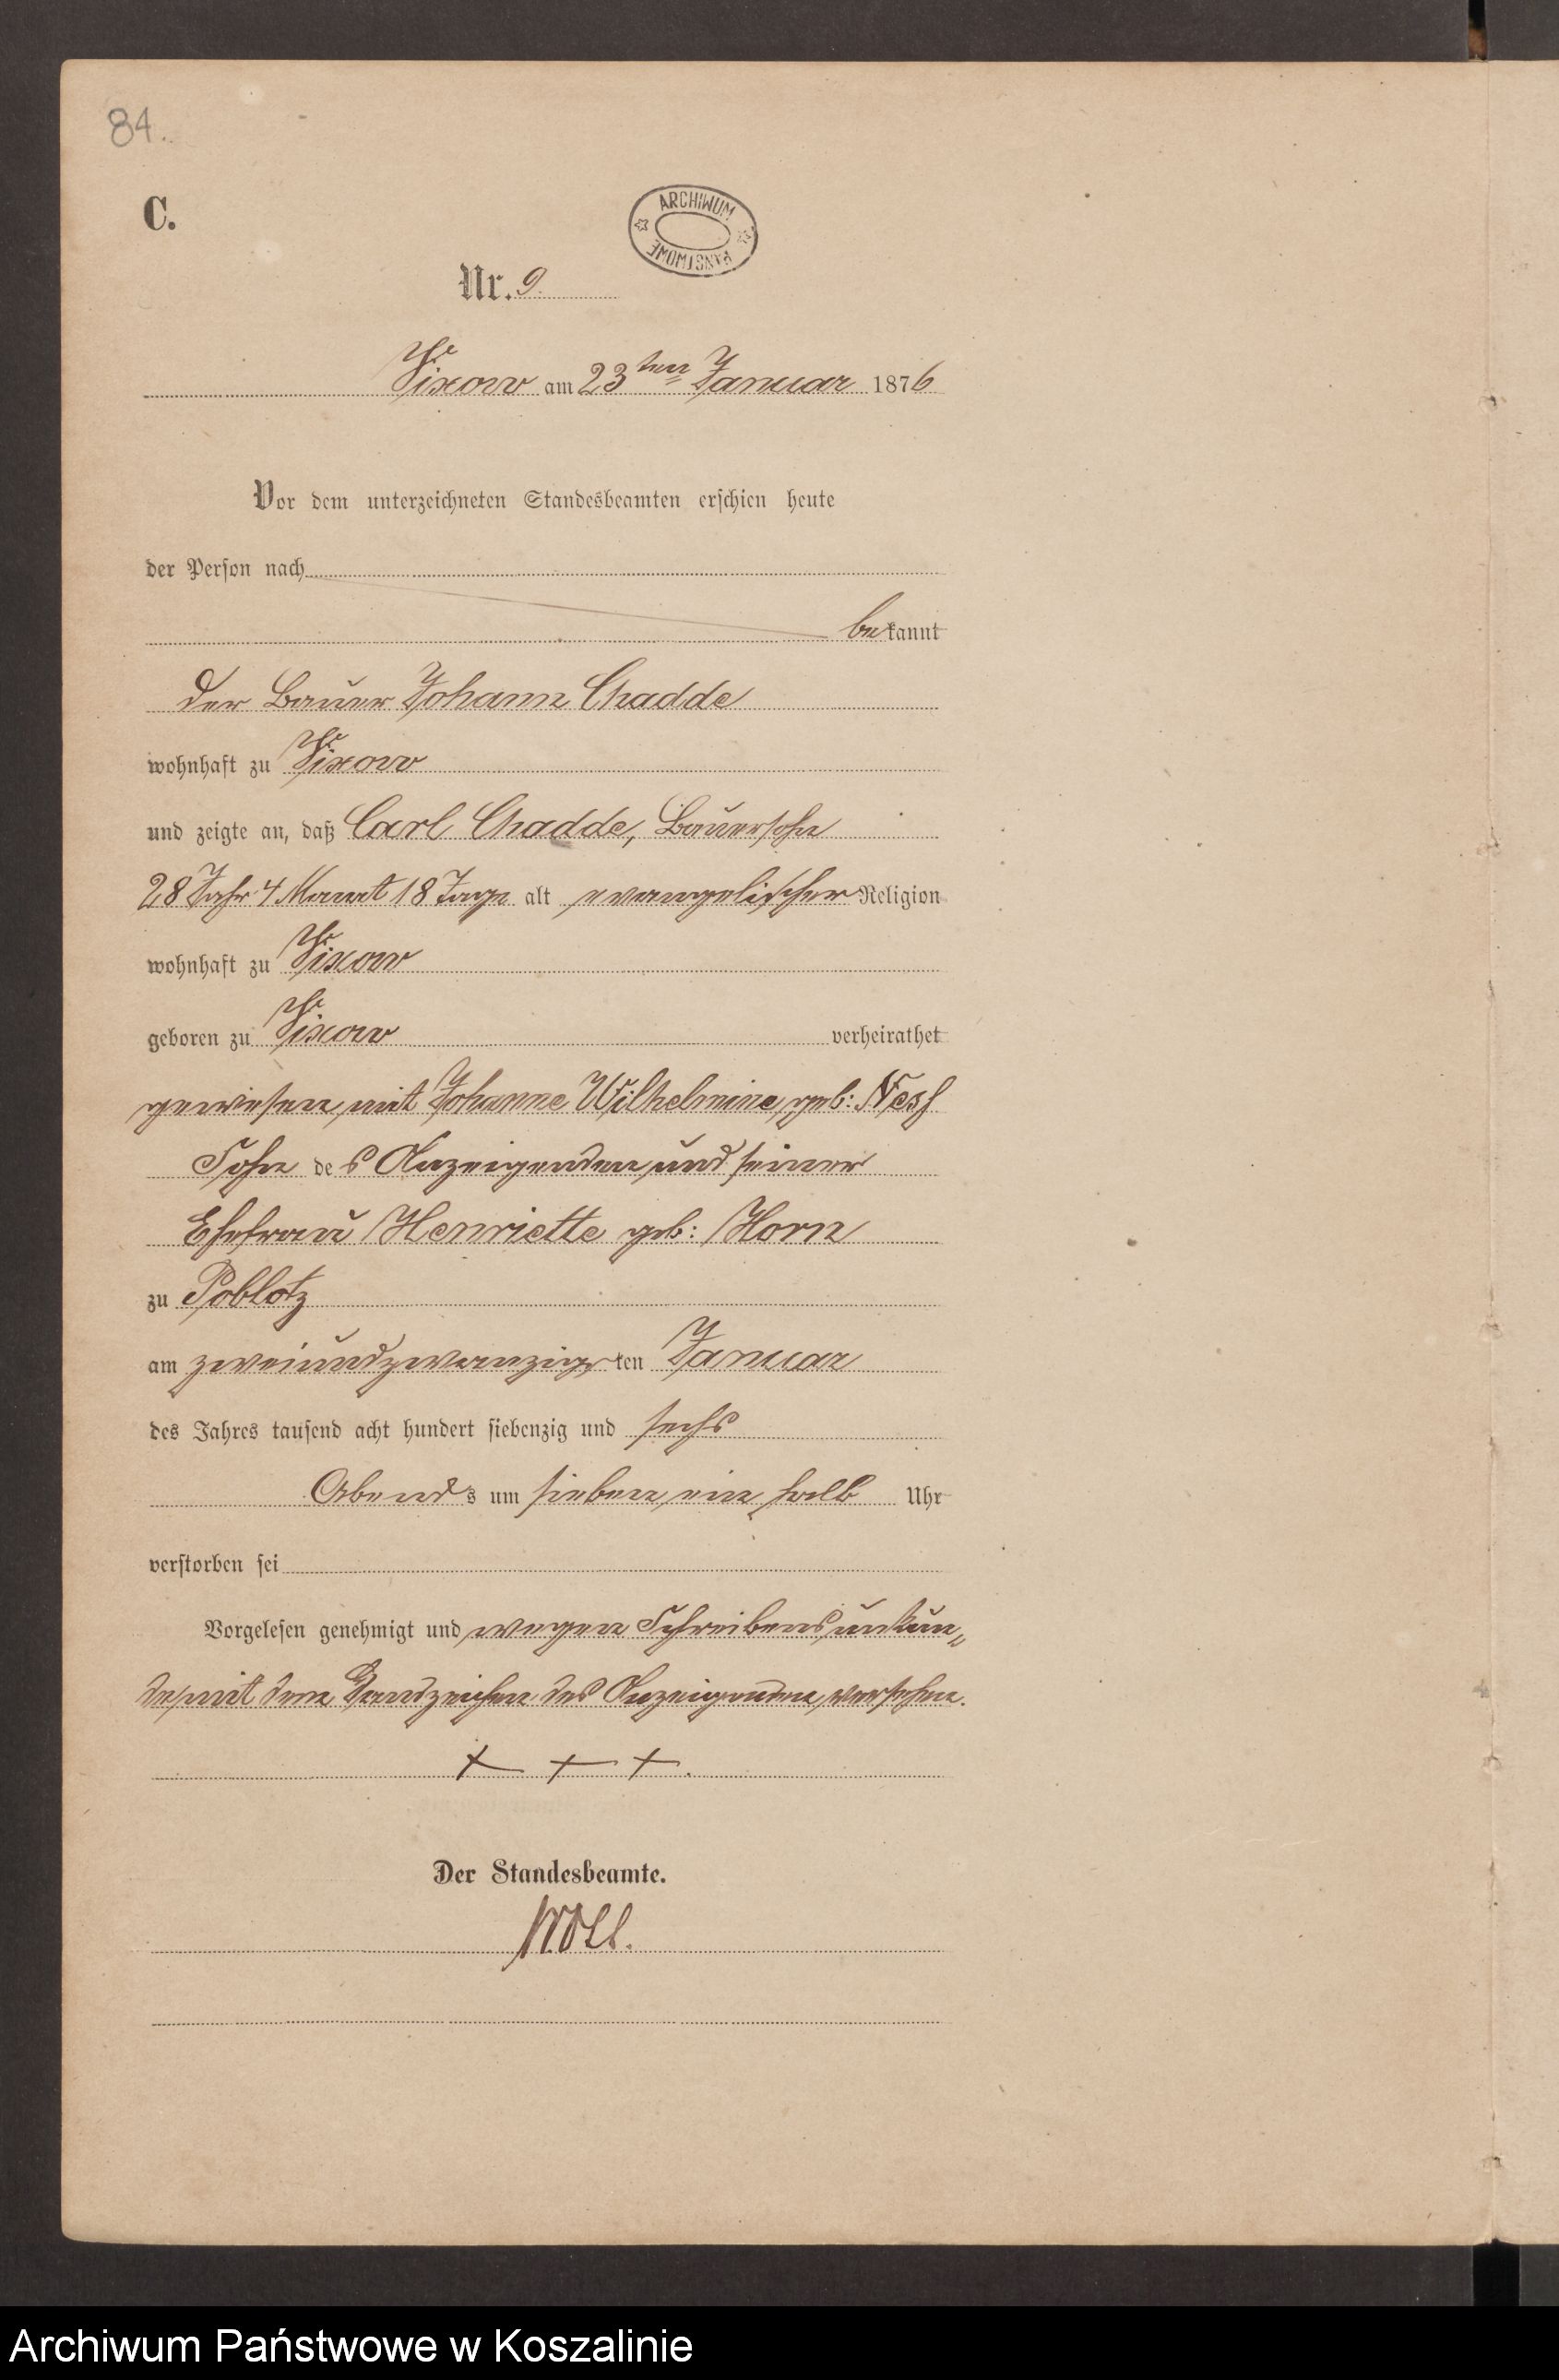 84.
C.
ARCHIWUM
PAŃSTWOWE
Nr. 9
Vixow am 23ten Januar 1876
Vor dem unterzeichneten Standesbeamten erschien heute
der Person nach
bekannt
der Bauer Johann Chadde
wohnhaft zu Vixow
und zeigte an, daß Carl Chadde, Bauersohn
28 Jahr 4 Monat 18 Tage alt evangelischer Religion
wohnhaft zu Vixow
geboren zu Vixow verheirathet
gewesen mit Johanne Wilhelmine geb:
Sohn des Anzeigenden und seiner
Ehefrau Henriette geb: Horn
zu Poblotz
am zweiundzwanzigsten Januar
des Jahres tausend acht hundert siebenzig und sechs
Abends um sieben ein halb Uhr
verstorben sei
Vorgelesen genehmigt und wegen Schreibensunkun„
de mit dem Handzeichen des Anzeigenden versehen.
+ + +.
Der Standesbeamte.
Archiwum Państwowe w Koszalinie